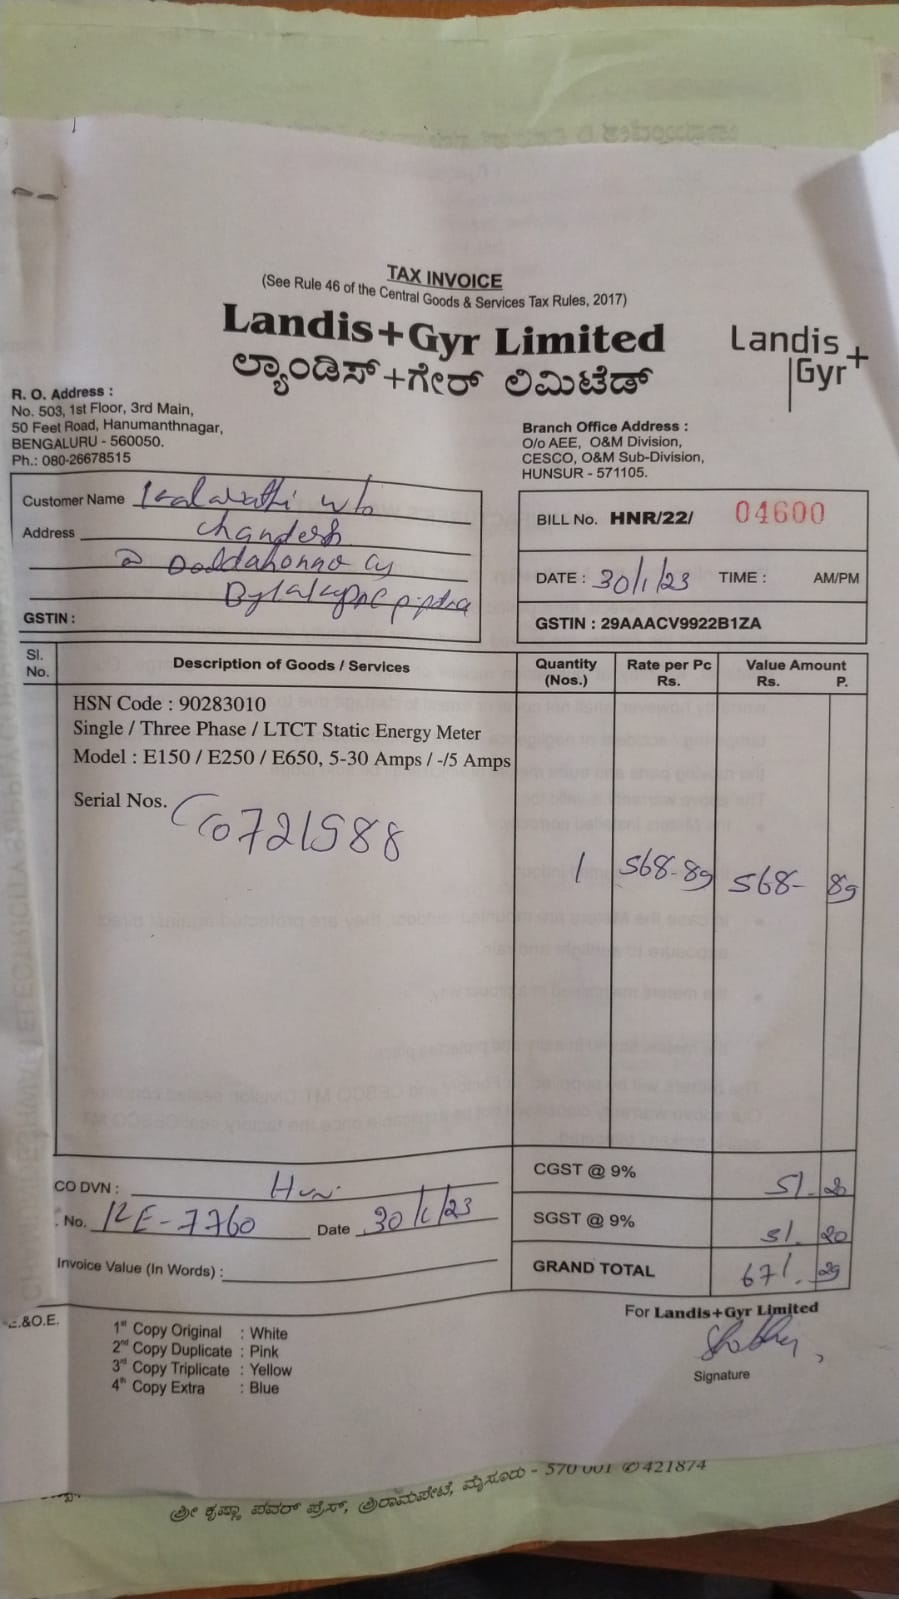 TAX INVOICE
(See Rule 46 of the Central Goods & Services Tax Rules, 2017)
Landis+Gyr Limited
ಲ್ಯಾಂಡಿಸ್+ಗೇರ್ ಲಿಮಿಟೆಡ್
Landis
Gyr+
R. O. Address :
No. 503, 1st Floor, 3rd Main,
50 Feet Road, Hanumanthnagar,
BENGALURU - 560050.
Ph.: 080-26678515
Branch Office Address :
O/o AEE, O&M Division,
CESCO, O&M Sub-Division,
HUNSUR - 571105.
Customer Name Kalavathi w/o
Address Chandesh
@
GSTIN :
BILL No. HNR/22/ 04600
DATE : 30/1/23 TIME : AM/PM
GSTIN : 29AAACV9922B1ZA
Sl. No. Description of Goods / Services Quantity (Nos.) Rate per Pc Rs. Value Amount Rs. P.
HSN Code : 90283010
Single / Three Phase / LTCT Static Energy Meter
Model : E150 / E250 / E650, 5-30 Amps / -/5 Amps
Serial Nos. 0721588
1 568-89 568- 89
CGST @ 9% 51. 20
CO DVN : Hun
SGST @ 9% 51. 20
No. 12E-7760 Date 30/1/23
Invoice Value (In Words) :
GRAND TOTAL 671. 29
E.&O.E.
For Landis+Gyr Limited
1st Copy Original : White
2nd Copy Duplicate : Pink
3rd Copy Triplicate : Yellow
4th Copy Extra : Blue
Signature
ಶ್ರೀ ಕೃಷ್ಣಾ ಪವರ್ ಪ್ರೆಸ್, ಶ್ರೀರಾಮಪೇಟೆ, ಮೈಸೂರು - 570 001 ✆ 421874